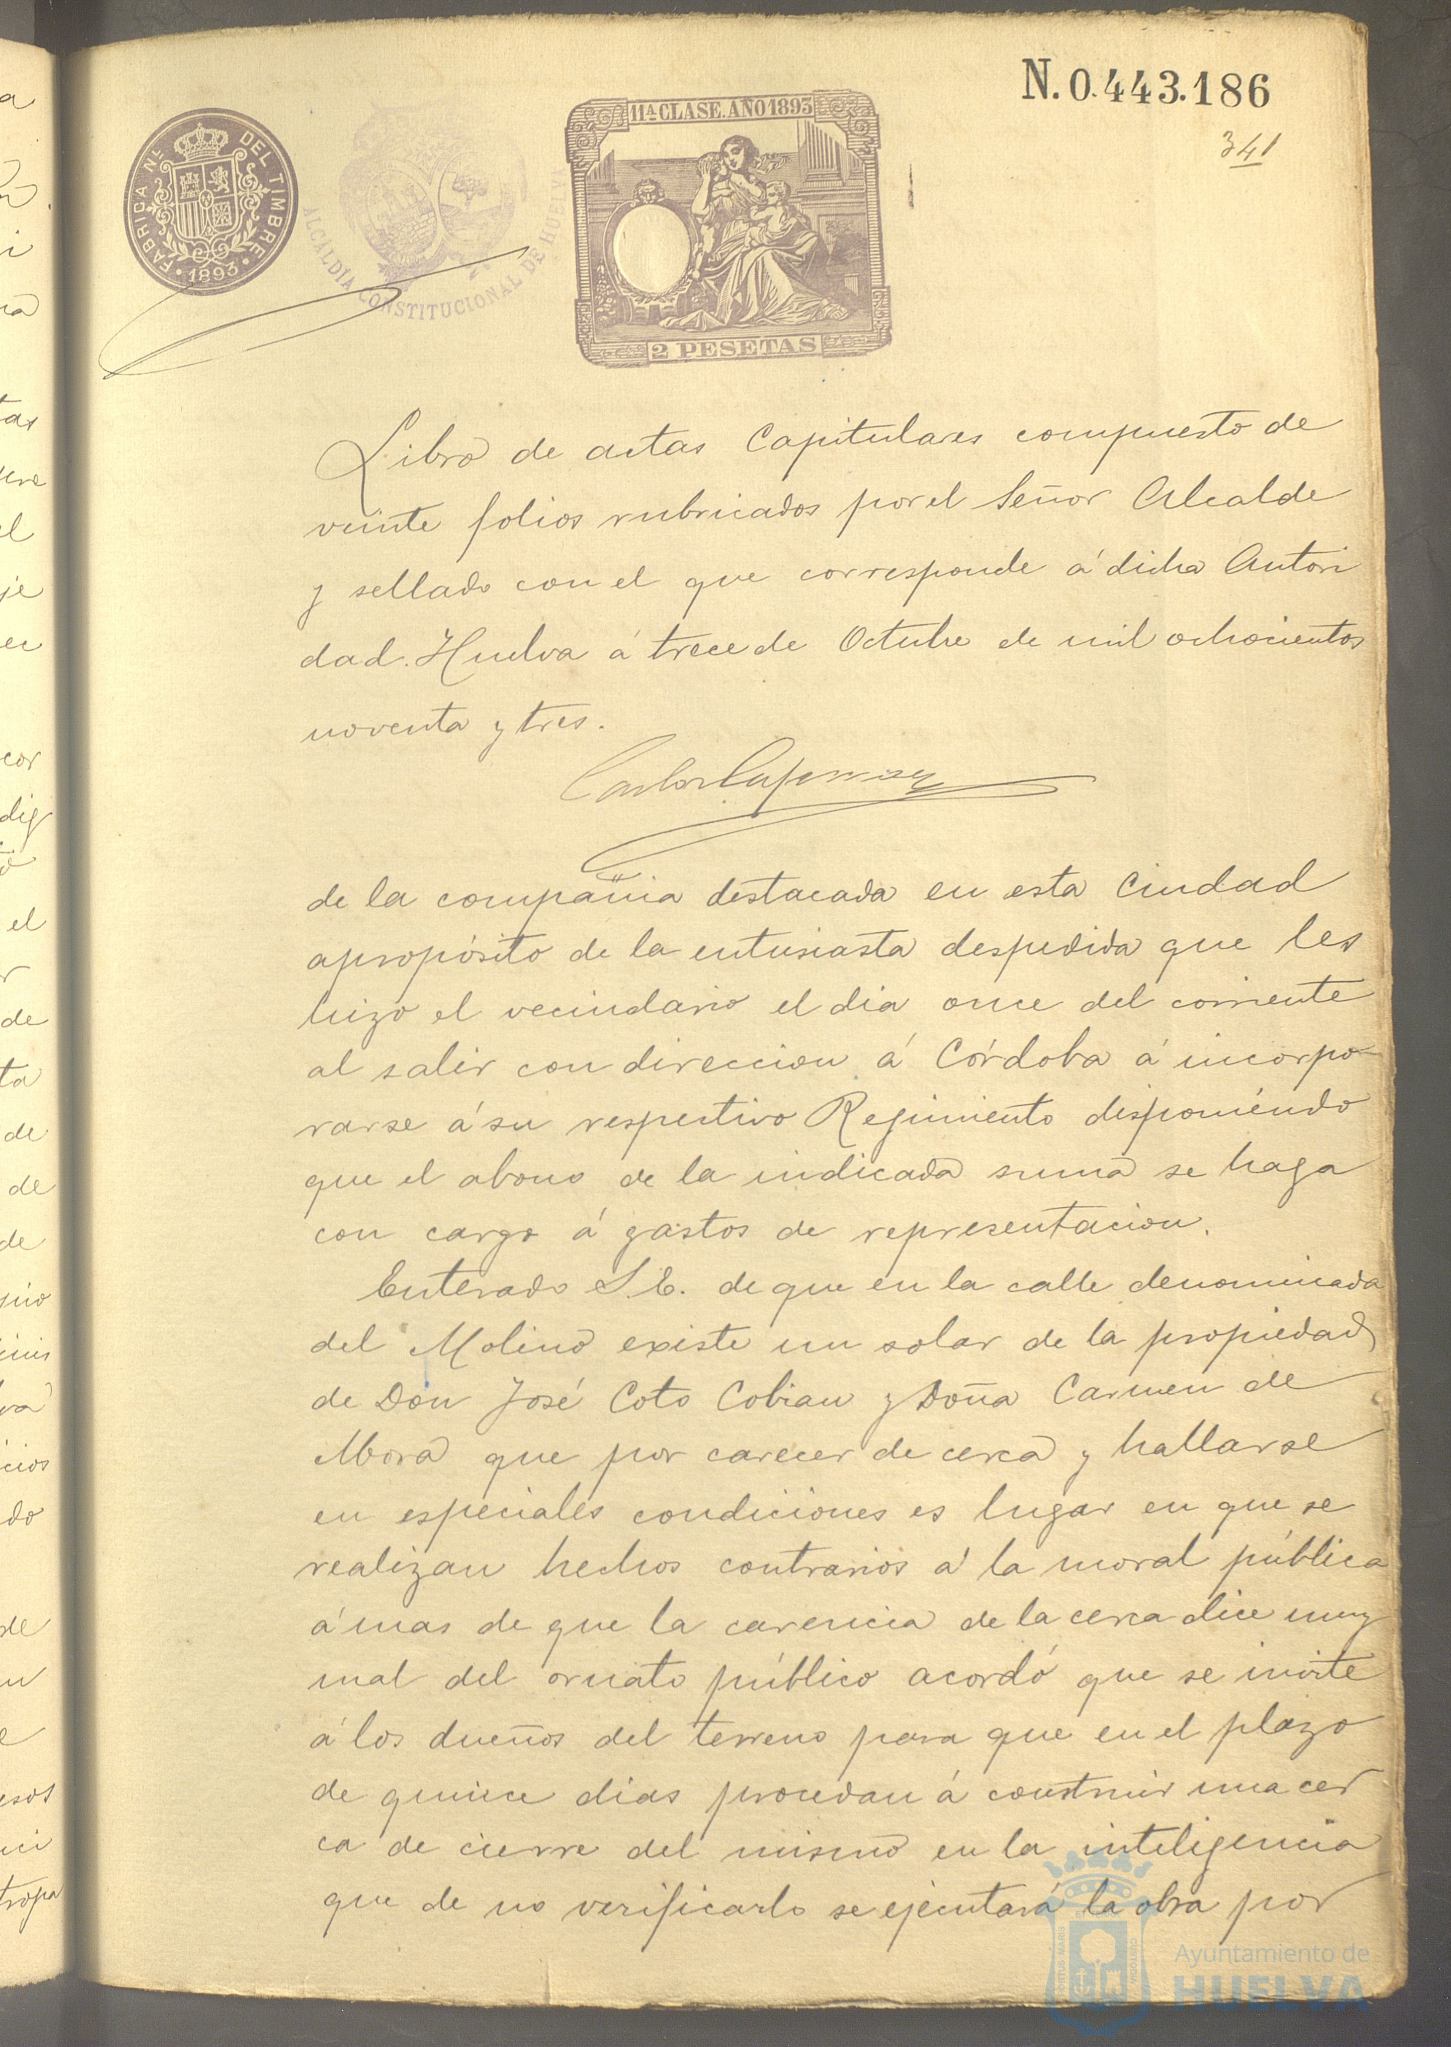 N. 0.443.186
341
FABRICA NL. DEL TIMBRE
1893
ALCALDÍA CONSTITUCIONAL DE HUELVA
11ª CLASE. AÑO 1893
2 PESETAS
Libro de actas Capitulares compuesto de
veinte folios rubricados por el Señor Alcalde
y sellado con el que corresponde á dicha Autori
dad. Huelva á trece de Octubre de mil ochocientos
noventa y tres.
de la compañia destacada en esta Ciudad
apropósito de la entusiasta despedida que les
hizo el vecindario el dia once del corriente
al salir con direccion á Córdoba á incorpo-
rarse á su respectivo Regimiento disponiéndo
que el abono de la indicada suma se haga
con cargo á gastos de representacion.
Enterado S.E. de que en la calle denominada
del Molino existe un solar de la propiedad
de Don José Coto Cobian y Doña Carmen de
Mora que por carecer de cerca y hallarse
en especiales condiciones es lugar en que se
realizan hechos contrarios á la moral pública
á mas de que la carencia de la cerca dice muy
mal del ornato público acordó que se invite
á los dueños del terreno para que en el plazo
de quince dias procedan á construir una cer
ca de cierre del mismo en la inteligencia
que de no verificarlo se ejecutará la obra por
Ayuntamiento de
HUELVA